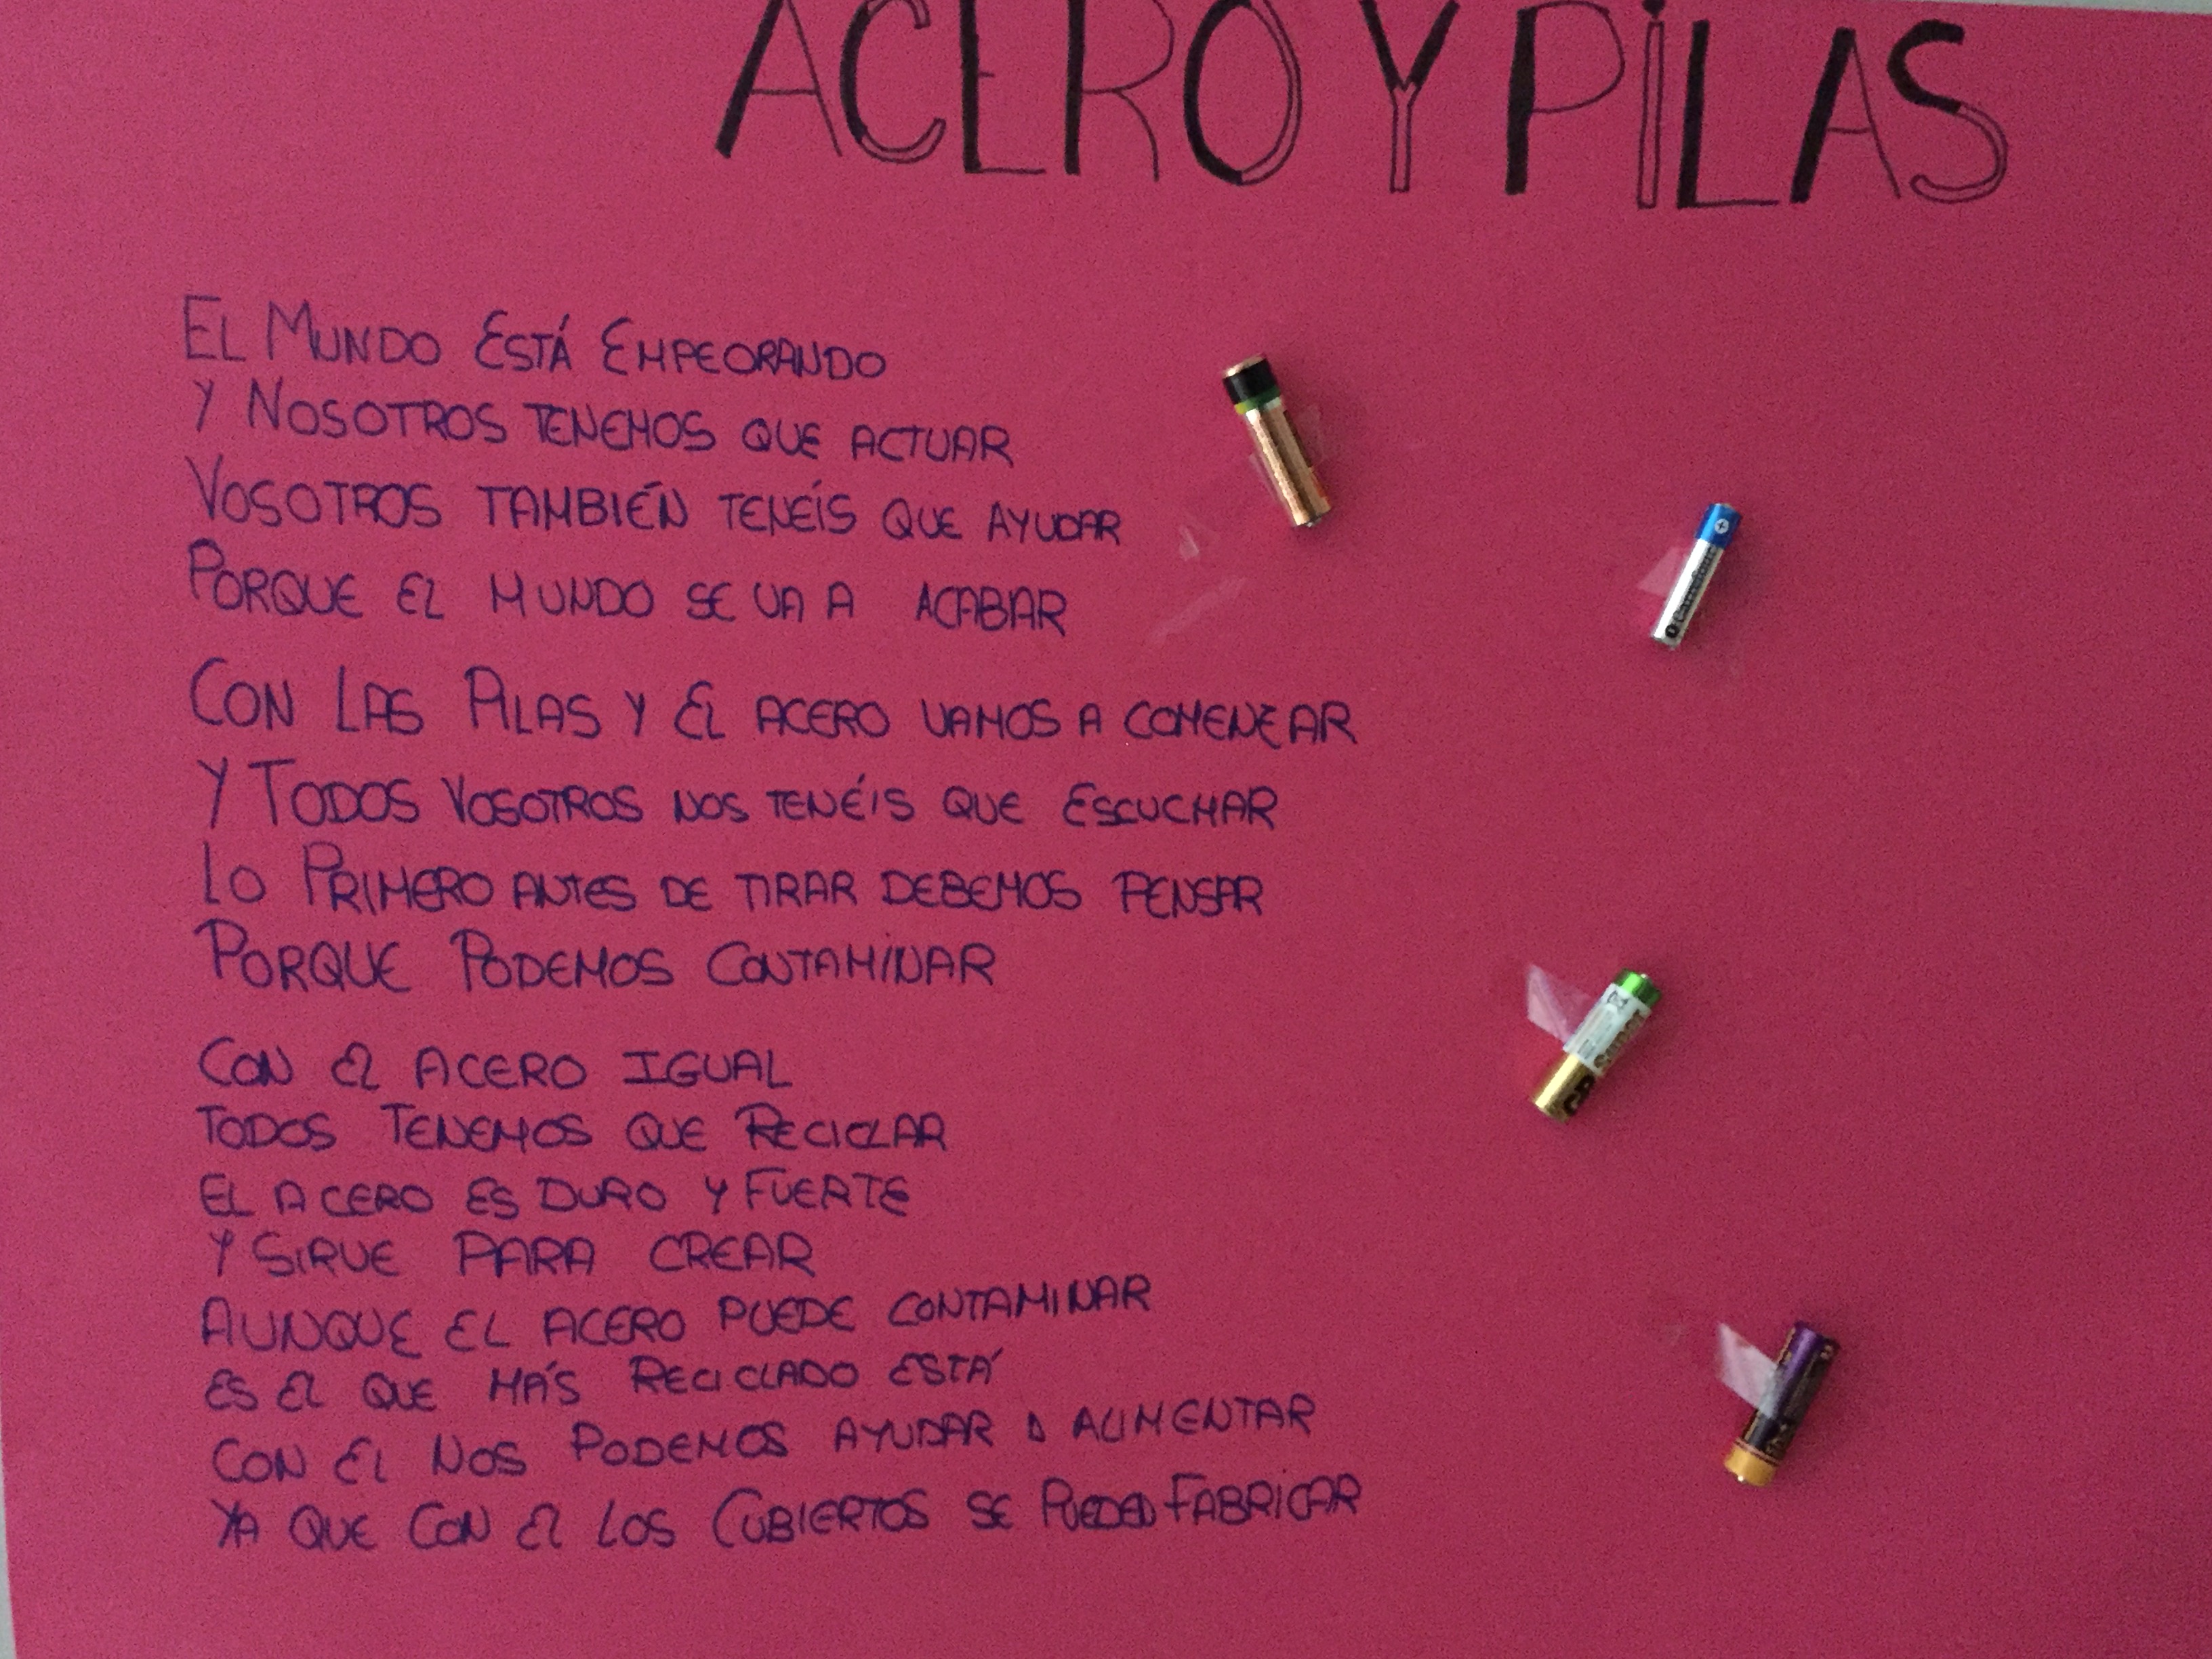 ACERO Y PILAS
EL MUNDO ESTÁ EMPEORANDO
Y NOSOTROS TENEMOS QUE ACTUAR
VOSOTROS TAMBIÉN TENEÍS QUE AYUDAR
PORQUE EL MUNDO SE VA A ACABAR
CON LAS PILAS Y EL ACERO VAMOS A COMENZAR
Y TODOS VOSOTROS NOS TENÉIS QUE ESCUCHAR
LO PRIMERO ANTES DE TIRAR DEBEMOS PENSAR
PORQUE PODEMOS CONTAMINAR
CON EL ACERO IGUAL
TODOS TENEMOS QUE RECICLAR
EL ACERO ES DURO Y FUERTE
Y SIRVE PARA CREAR
AUNQUE EL ACERO PUEDE CONTAMINAR
ES EL QUE MÁS RECICLADO ESTÁ
CON EL NOS PODEMOS AYUDAR A ALIMENTAR
YA QUE CON EL LOS CUBIERTOS SE PUEDEN FABRICAR
GP